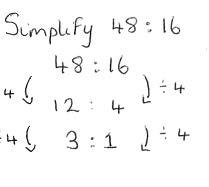 Simplify 48 : 16
48 : 16
4 ÷ 4
12 : 4
÷ 4 ÷ 4
3 : 1